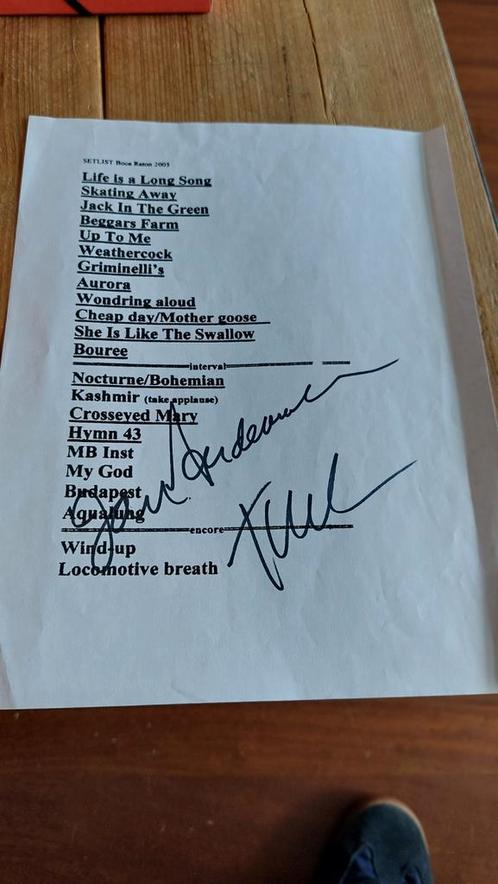 SETLIST Boca Raton 2005
Life is a Long Song
Skating Away
Jack In The Green
Beggars Farm
Up To Me
Weathercock
Griminelli's
Aurora
Wondring aloud
Cheap day/Mother goose
She Is Like The Swallow
Bouree
interval
Nocturne/Bohemian
Kashmir (take applause)
Crosseyed Mary
Hymn 43
MB Inst
My God
Budapest
Aqualung
encore
Wind-up
Locomotive breath
Ian Anderson